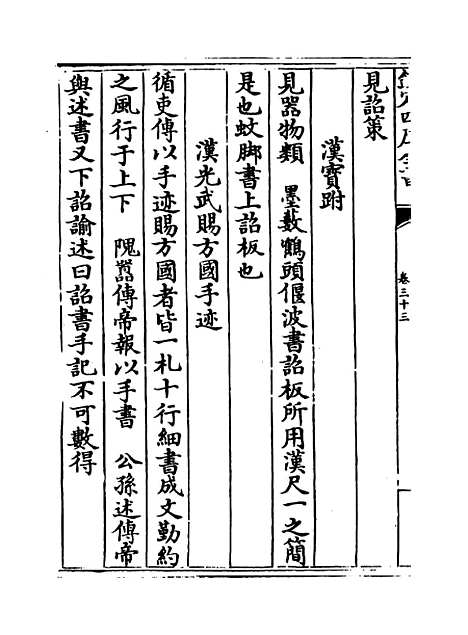 欽定四庫全書
卷三十三
見詔策
漢寶跗
見器物類 墨藪鶴頭偃波書詔板所用漢尺一之簡
是也蚊脚書上詔板也
漢光武賜方國手迹
循吏傳以手迹賜方國者皆一札十行細書成文勤約
之風行于上下 隗囂傳帝報以手書 公孫述傳帝
與述書又下詔諭述曰詔書手記不可數得